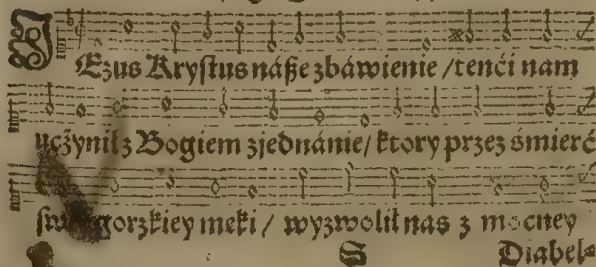 JEzus Krystus náße zbáwienie / tenći nam
uczynił z Bogiem zjednánie / ktory przez śmierć
gorzkiey męki / wyzwolił nas z mocney
S Diabel=